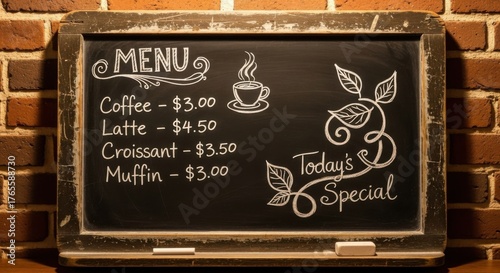 MENU
Coffee – $3.00
Latte – $4.50
Croissant – $3.50
Muffin – $3.00
Today's
Special